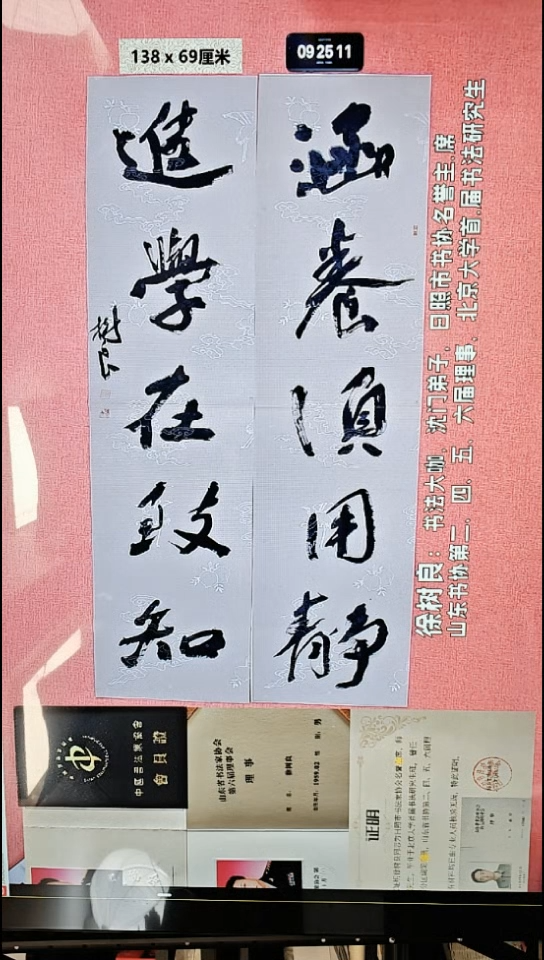 138 x 69厘米
09 25 11
涵養須用静
進學在致知
樹良
徐树良：书法大咖，沈门弟子，日照市书协名誉主席
山东书协第二、四、五、六届理事，北京大学首届书法研究生
中國書法家協會
會員證
山东省书法家协会
第六届理事会
理事
男
证明